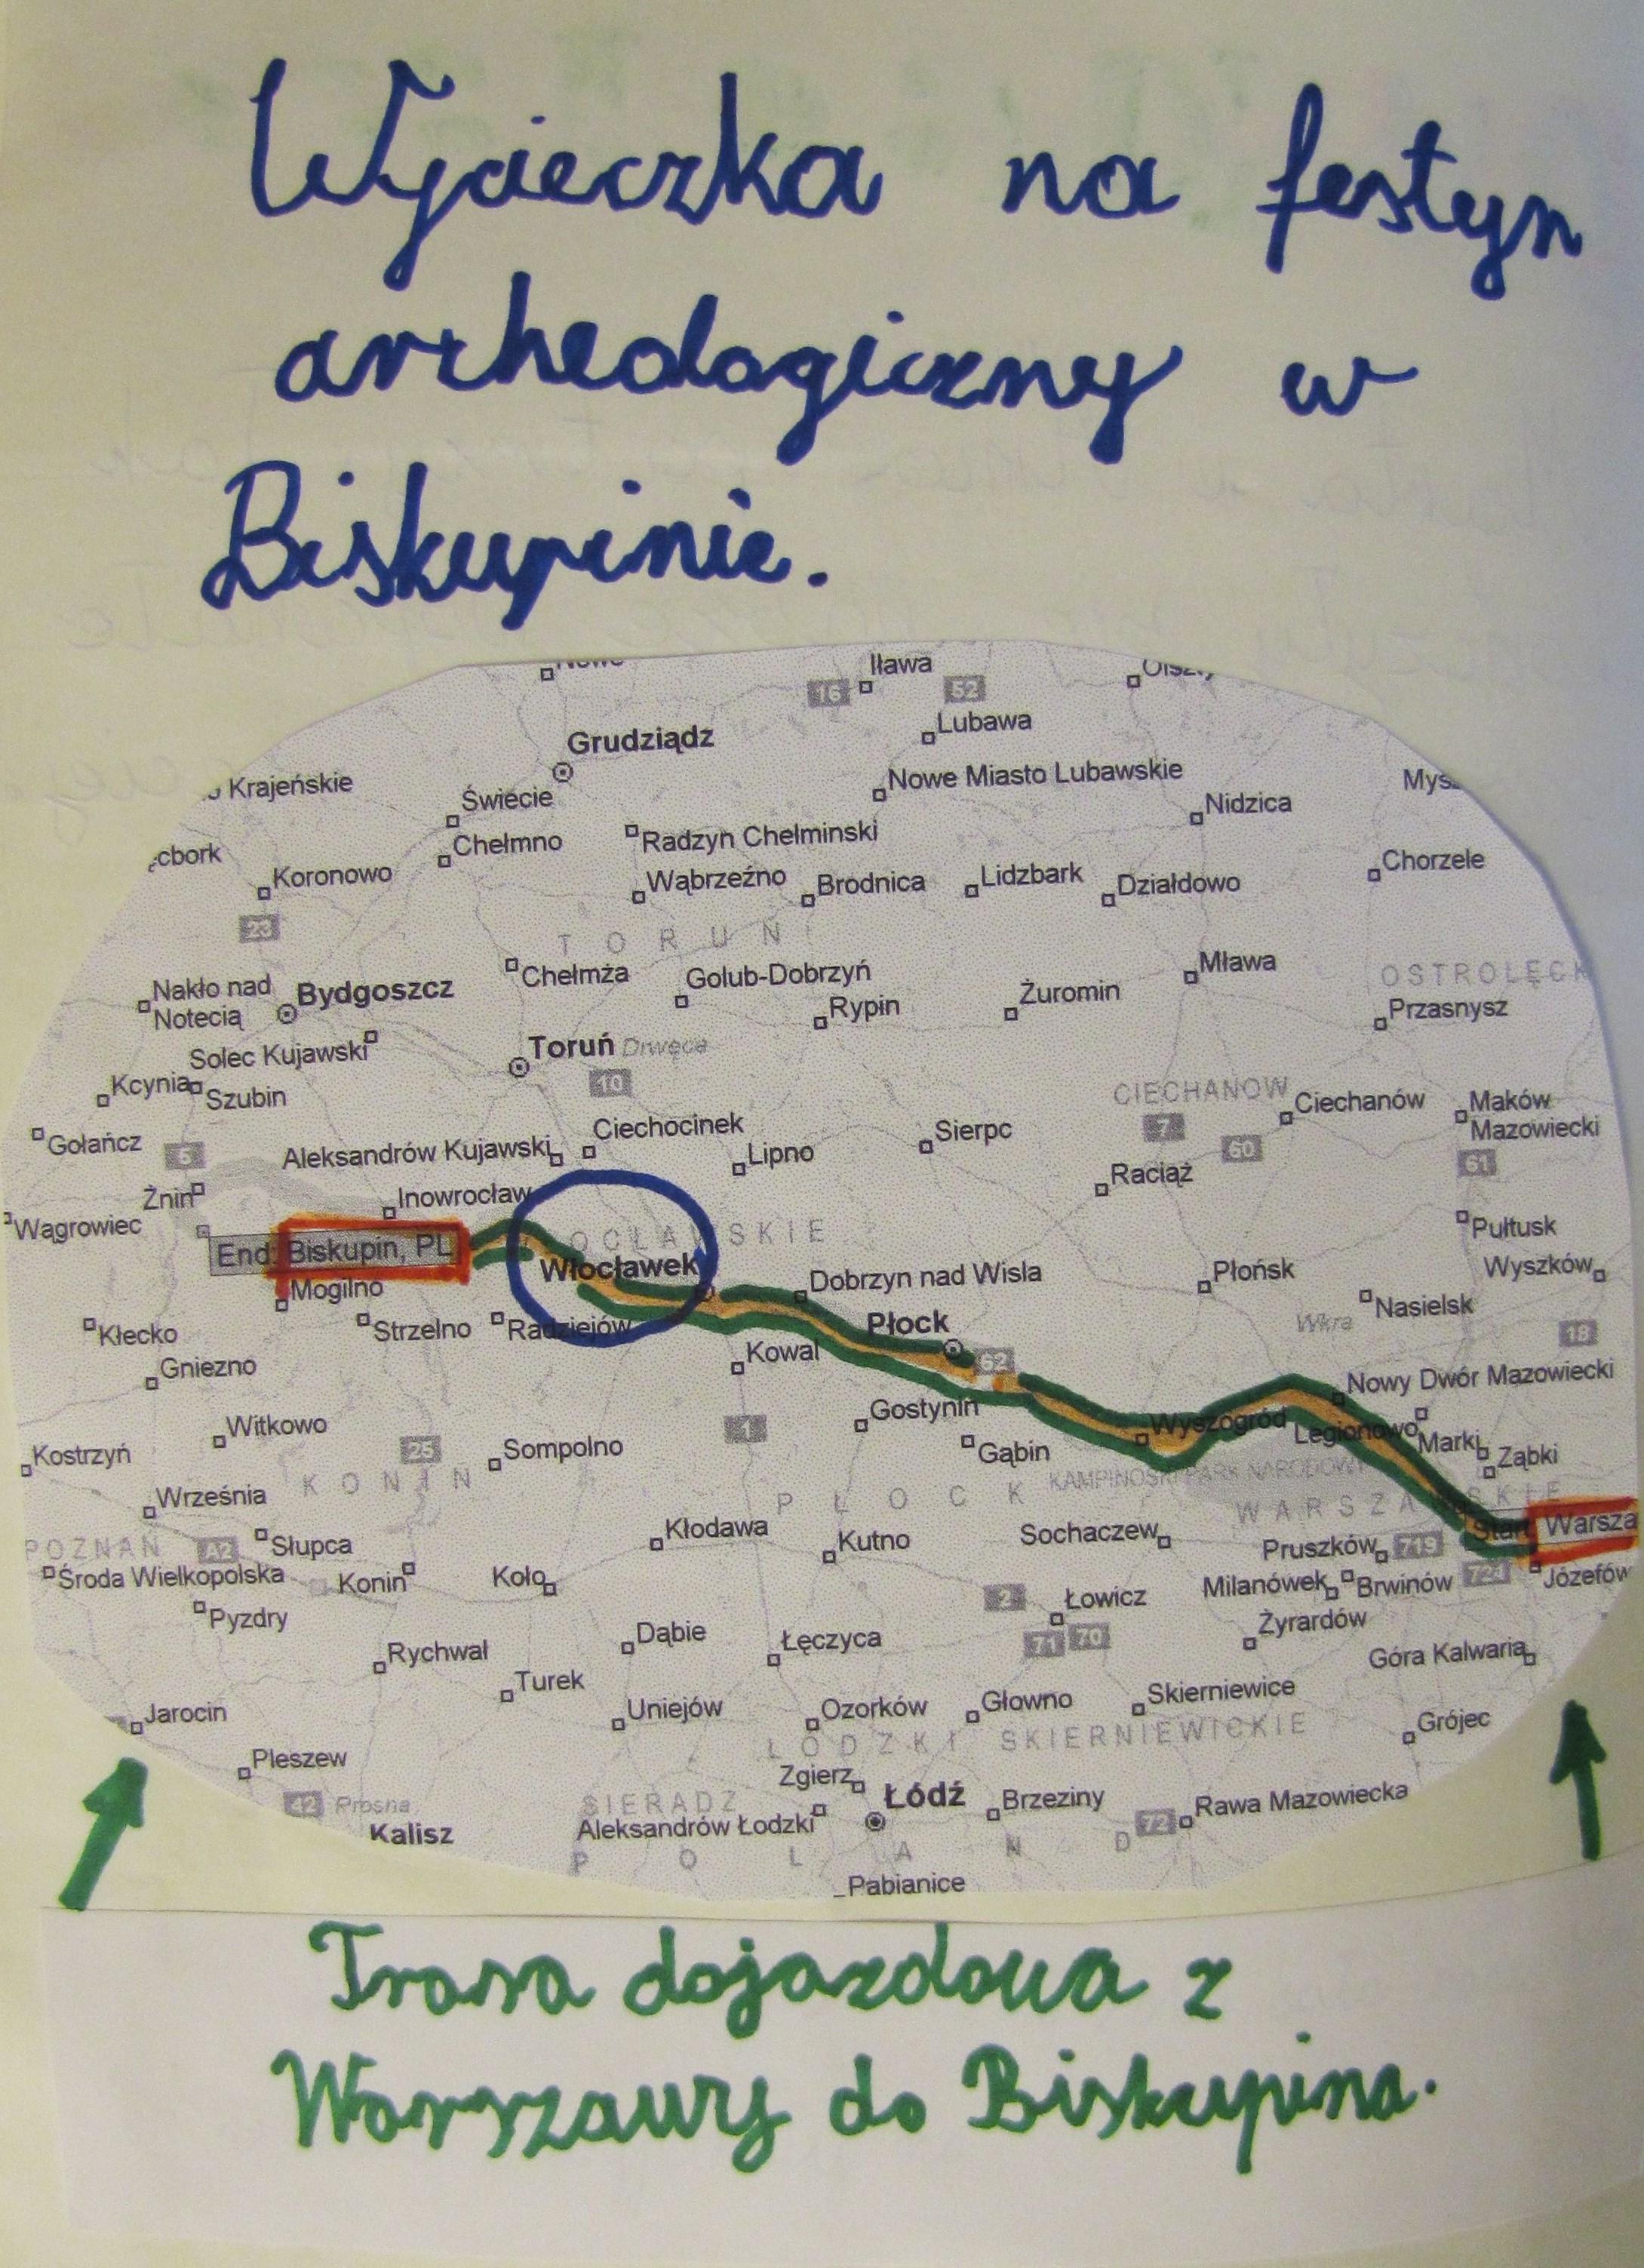 Wycieczka na festyn
archeologiczny w
Biskupinie.
Iława
16
52
Lubawa
Grudziądz
Krajeńskie
Nowe Miasto Lubawskie
Świecie
Nidzica
Chełmno
Radzyn Chelminski
Koronowo
Wąbrzeźno
Brodnica
Lidzbark
Działdowo
Chorzele
23
TORUN
Chełmża
Golub-Dobrzyń
Mława
Nakło nad
Notecią
Bydgoszcz
Rypin
Żuromin
Przasnysz
Solec Kujawski
Toruń
Drwęca
10
Kcynia
Szubin
CIECHANOW
Ciechanów
Maków
Mazowiecki
Gołańcz
5
Aleksandrów Kujawski
Ciechocinek
Lipno
Sierpc
7
60
61
Raciąż
Żnin
Inowrocław
Wągrowiec
Pułtusk
End: Biskupin, PL
Włocławek
Dobrzyn nad Wisla
Płońsk
Wyszków
Mogilno
Nasielsk
Kłecko
Strzelno
Radziejów
Płock
Wkra
18
Gniezno
Kowal
62
Nowy Dwór Mazowiecki
Witkowo
Gostynin
Wyszogród
Legionowo
Marki
Ząbki
Kostrzyń
25
Sompolno
1
Gąbin
KAMPINOSKI PARK NARODOWY
Września
KONIN
PŁOCK
WARSZAWSKIE
Słupca
Kłodawa
Kutno
Sochaczew
Start
Warsza
POZNAŃ
A2
Pruszków
719
Środa Wielkopolska
Konin
Koło
2
Łowicz
Milanówek
Brwinów
724
Józefów
Pyzdry
Dąbie
Łęczyca
71
70
Żyrardów
Rychwał
Góra Kalwaria
Turek
Uniejów
Ozorków
Głowno
Skierniewice
Jarocin
Grójec
ŁODZKI
SKIERNIEWICKIE
Pleszew
Zgierz
42
Prosna
SIERADZ
Łódź
Brzeziny
72
Rawa Mazowiecka
Kalisz
Aleksandrów Łodzki
POLAND
Pabianice
Trasa dojazdowa z
Warszawy do Biskupina.